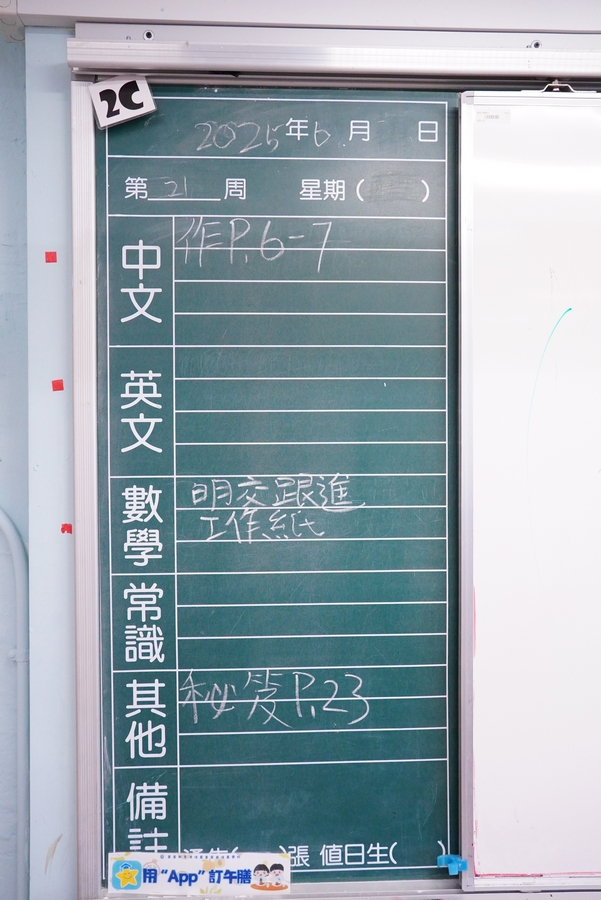 2C
2025年6月 日
第21周 星期( )
中文
作P.6-7
英文
數學
明交跟進
工作紙
常識
其他
秘笈P.23
備註
張 值日生( )
用“App”訂午膳